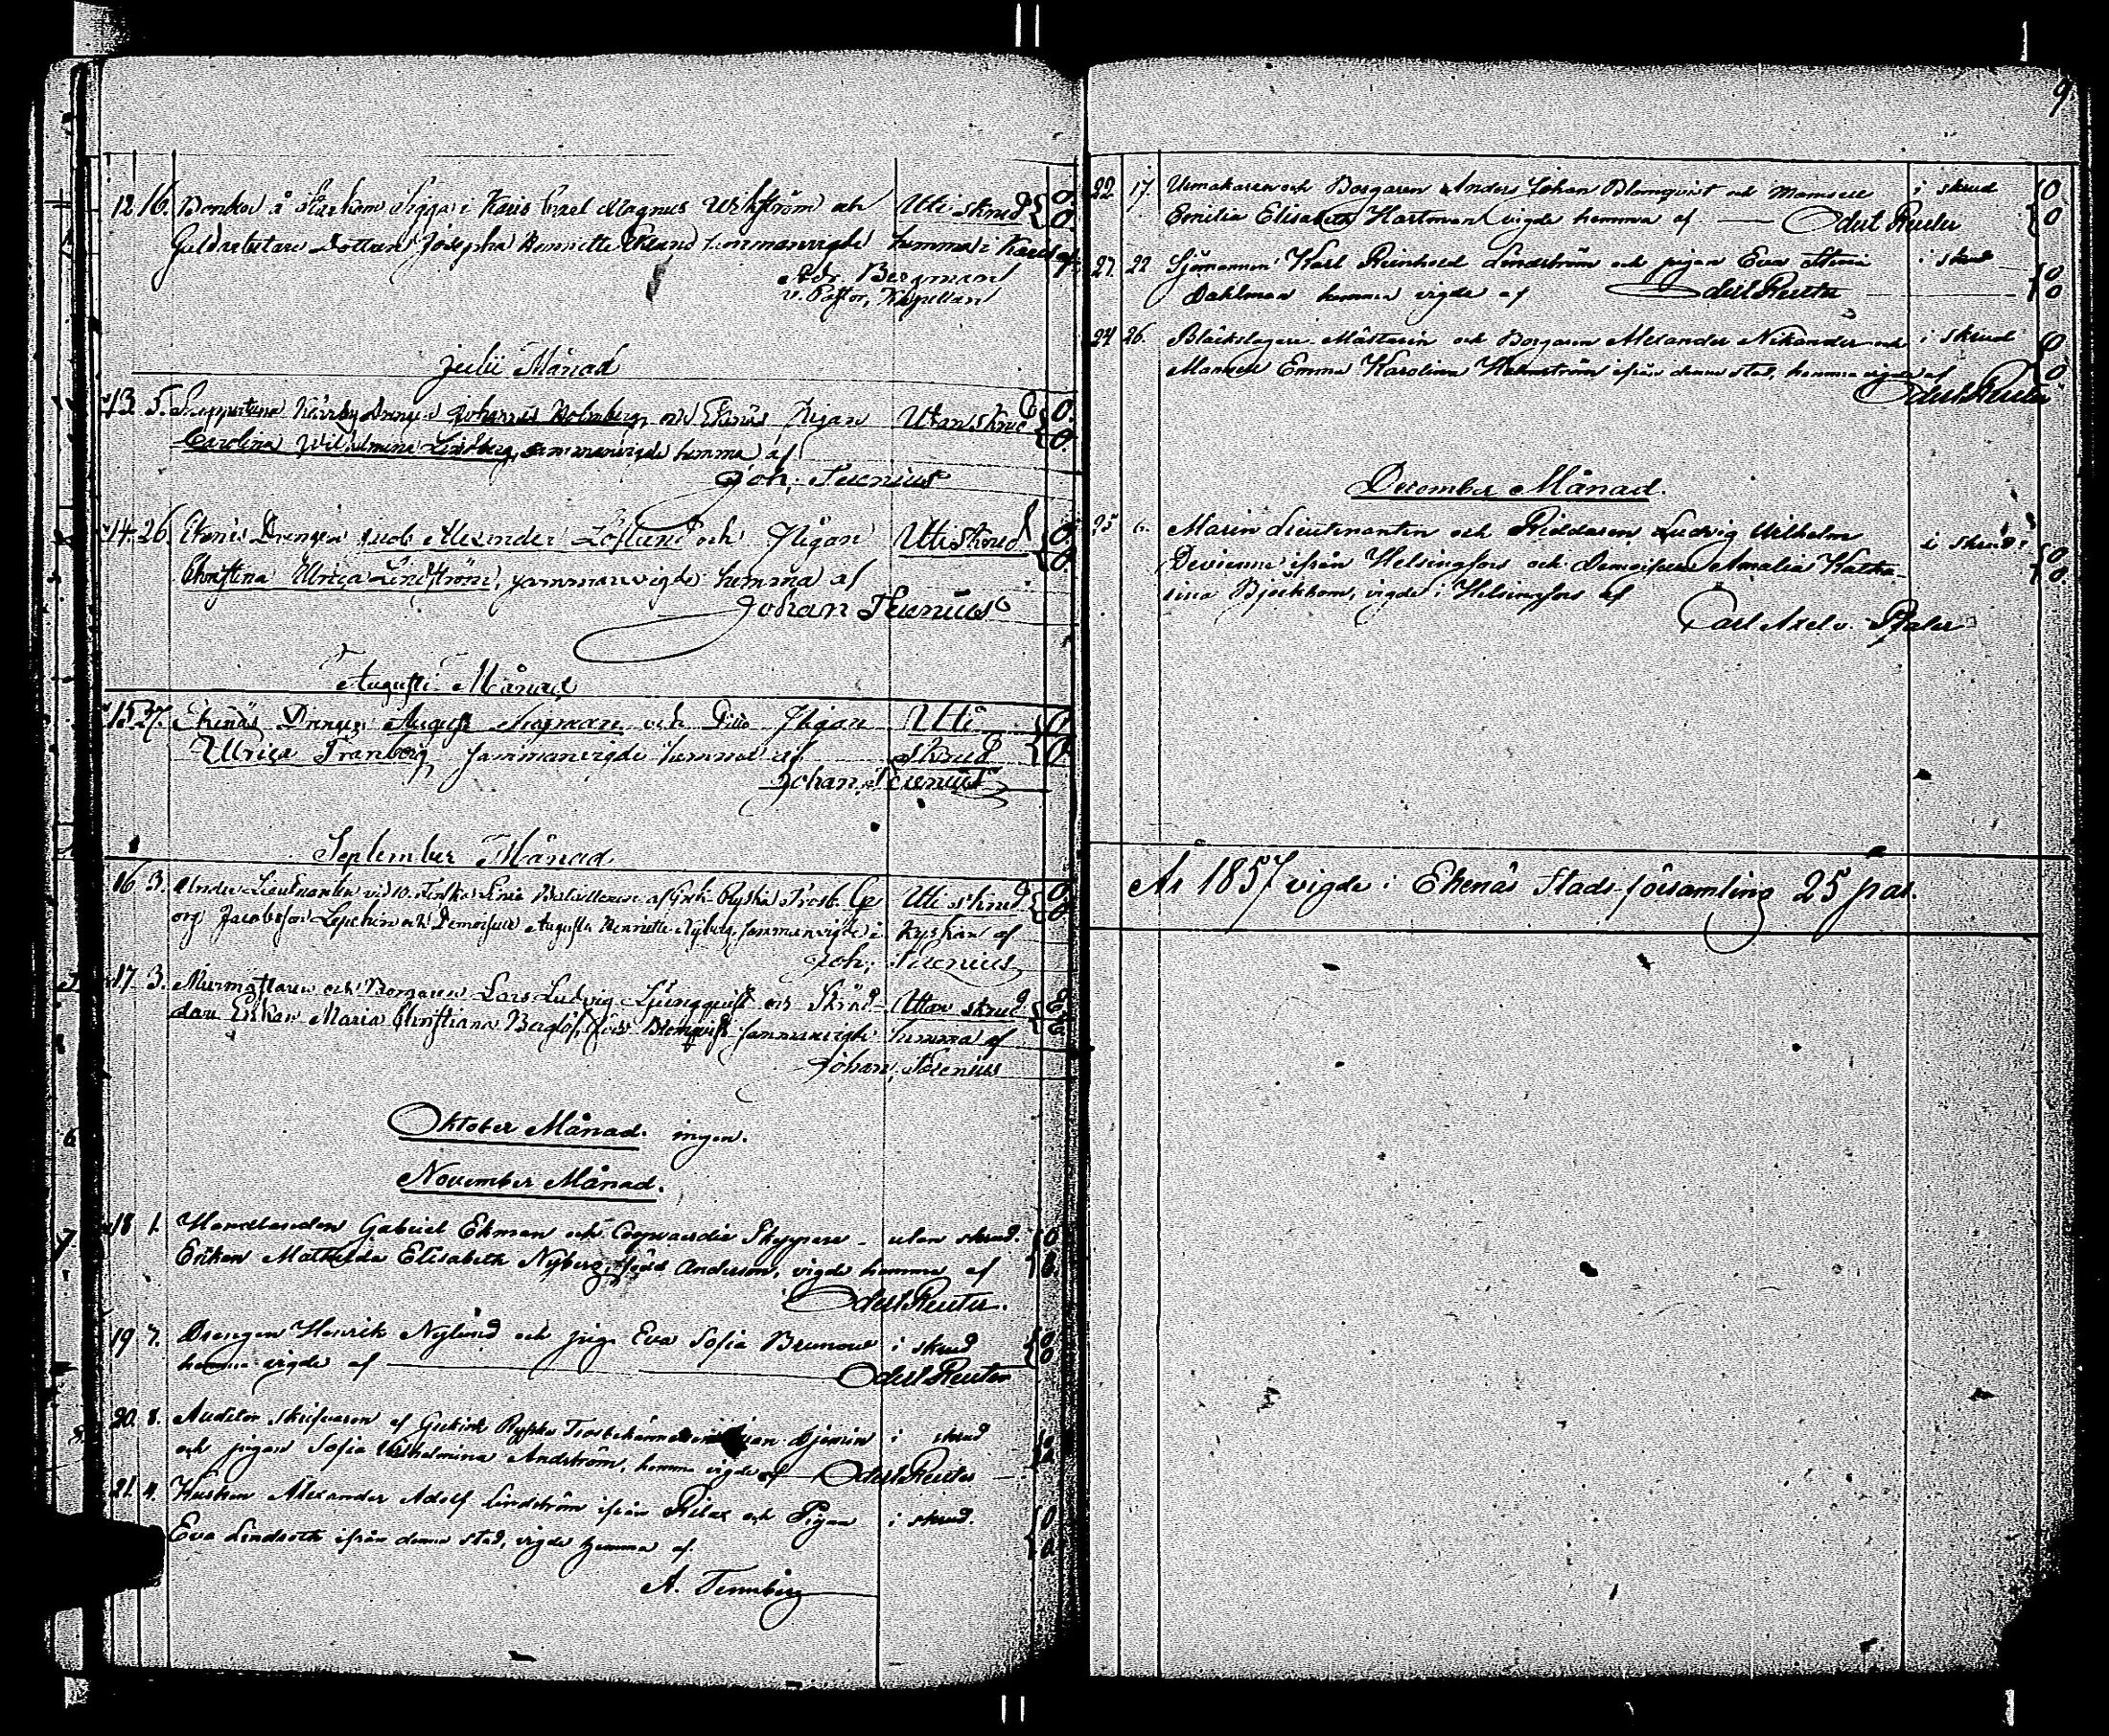 12 16. Bonken å Starkom Siggas i Karis Carl Magnus Wikström och Uti skrud 0. 0.
Dottern Josepha Henriette Eklund sammanvigde hemma i Karis af
Bergman
v. Pastor, Kapellan
Julii Månad
13. 5. Kärrby Drengen Johannes Holmberg och Ekenäs Pigan Utan skrud 0. 0.
Carolina Wilhelmina Lindberg, sammanvigde hemma af
Joh. Tucenius
14. 26. Ekenäs Drengen Jacob Alexander Löflund och Pigan Uti skrud 0. 0.
Christina Ulrica Lindström, sammanvigde hemma af
Johan Tucenius
Augusti Månad
15. 27. Ekenäs Drengen August och Ditto Pigan Uti 0.
Ulrica Tranberg sammanvigde hemma af skrud 0.
Johan Tucenius
September Månad
16 3. Under Lieutnanten vid 10. Finska Linie Bataillonen af Grek. Ryska Trosb. Ge Uti skrud 0. 0.
org Jacobsson och Demoiselle Augusta Henriette Nyberg, sammanvigde i kyrkan af
Joh. Tucenius
17 3. Murmästaren och Borgaren Lars Ludvig Ljungqvist och Skräd- Utan skrud E. E.
dare Enkan Maria Christiana Berglöf, född Blomqvist sammanvigde hemma af
Johan. Tucenius
Oktober Månad. ingen.
November Månad.
18 1. Handlanden Gabriel Ekman och Coopvaerdie Skeppare utan skrud. 0
Enkan Mathilda Elisabeth Nyberg, född Anderson, vigde hemma af E.
Odert Reuter.
19 7. Drengen Henrik Nylund och pig. Eva Sofia Brunow i skrud 0 0
hemma vigde af Odert Reuter
20. 8. Auditor skrifvaren af Grekisk Ryska Trosbekännelsen i skrud
och pigan Sofia Wilhelmina Andström, hemma vigde af Odert Reuter
21. 4. Husken Alexander Adolf Lindström ifrån Rilax och Pigan i skrud. 0
Eva Lindroth ifrån denna stad, vigde hemma af 0.
A. Tennberg
9
22 17 Urmakaren och Borgaren Anders Johan Blomqvist och Mamsell i skrud 0
Emilia Elisabeth Hartman vigde hemma af Odert Reuter 0
23. 22 Sjömannen Karl Reinhold Lindström och pigan Eva Stina i skrud 0
Dahlman hemma vigde af Odert Reuter 0
24 26. Bläckslagare Mästaren och Borgaren Alexander Nikander och i skrud 0
Mamsell Emma Karolina Holmström ifrån denna stad, hemma vigde af 0
Odert Reuter
December Månad.
25 6. Marin Lieutenanten och Riddaren Ludvig Wilhelm i skrud. 0
Devienne ifrån Helsingfors och Demoiselle Amalia Katha- 0.
rina Björkbom, vigde i Helsingfors af
Carl Axel v. Pfaler
År 1857 vigde i Ekenäs Stads församling 25 par.